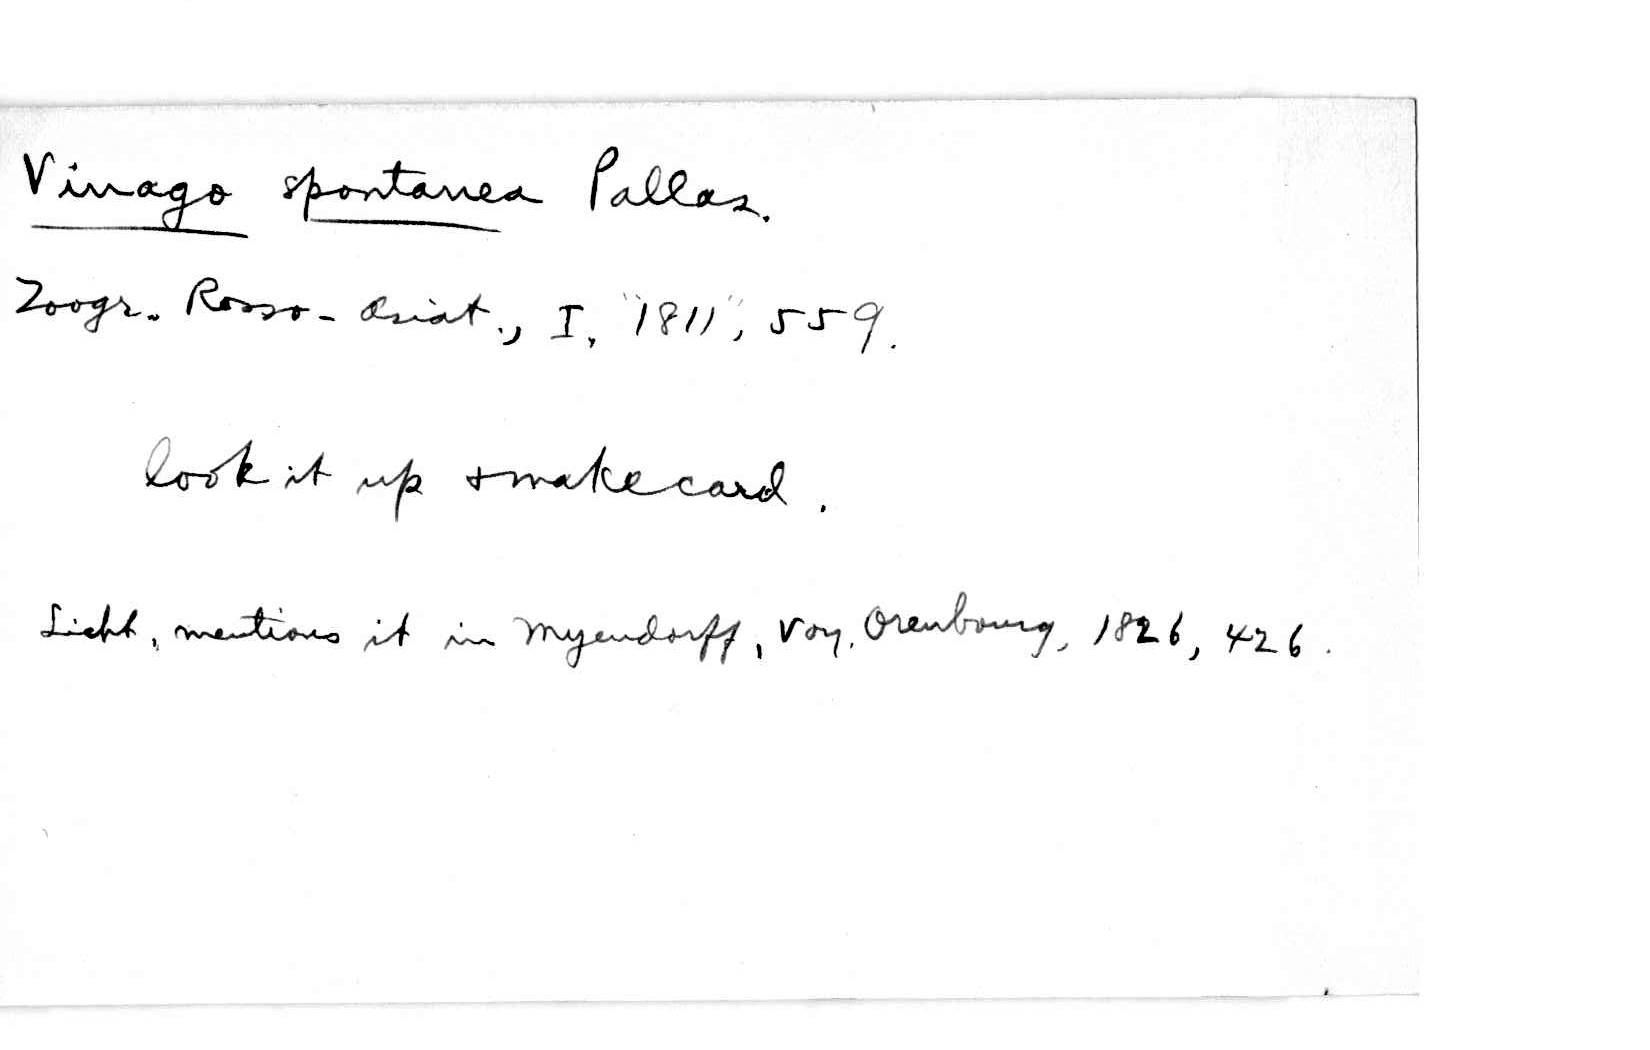 Vinago spontanea Pallas.
Zoogr. Rosso-Asiat., I, "1811", 559.
look it up + make card.
Licht, mentions it in Myendorff, Voy. Orenbourg, 1826, 426.